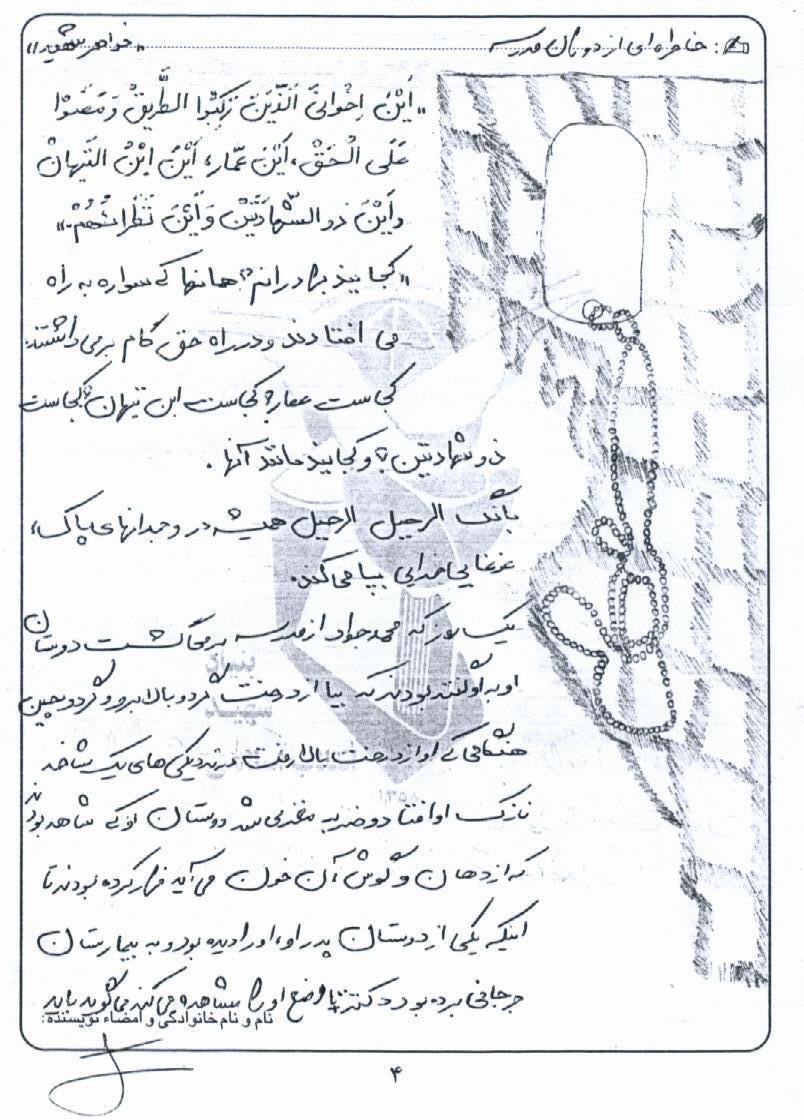 خاطره‌ای از دوران مدرسه: «خواهر شهید»
«أَیْنَ اِخْوانیَ اَلَّذینَ رَکِبُوا الطَّریقَ وَ مَضَوْا
عَلَی الْحَقْ، اَیْنَ عَمّار، اَیْنَ ابْنُ التَّیِهانْ
و اَیْنَ ذو الشَّهادَتَیْنْ وَ اَیْنَ نَظَرائُهُمْ.»
«کجایید برادرانم؟ همانها که سواره به راه
می افتادند و در راه حق گام برمی داشتند.
کجاست عمار؟ کجاست ابن تیهان؟ کجاست
ذو شهادتین؟ و کجایید مانند آنها.
بانگ الرحیل الرحیل همیشه در وجدانهای پاک،
غوغایی خدایی بپا می کند.
یک روز که محمد جواد از مدرسه برمی گشت دوستان
او به او گفته بودند که بیا از درخت گردو بالا برو و گردو بچین
هنگامی که او از درخت بالا رفت در نزدیکی های یک شاخه
نازک او افتاد و ضربه مغزی شد دوستان او که شاهد بودند
که از دهان و گوش آن خون می آید فرار کرده بودند تا
اینکه یکی از دوستان پدر او، او را دیده بود و به بیمارستان
جرجانی برده بود دکتر تا وضع او را مشاهده می کند می گوید باید
نام و نام خانوادگی و امضاء نویسنده:
۴
بنیاد
شهید
۱۳۵۸